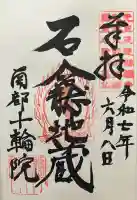 奉拝
令和七年
六月八日
石龕地蔵
南都十輪院